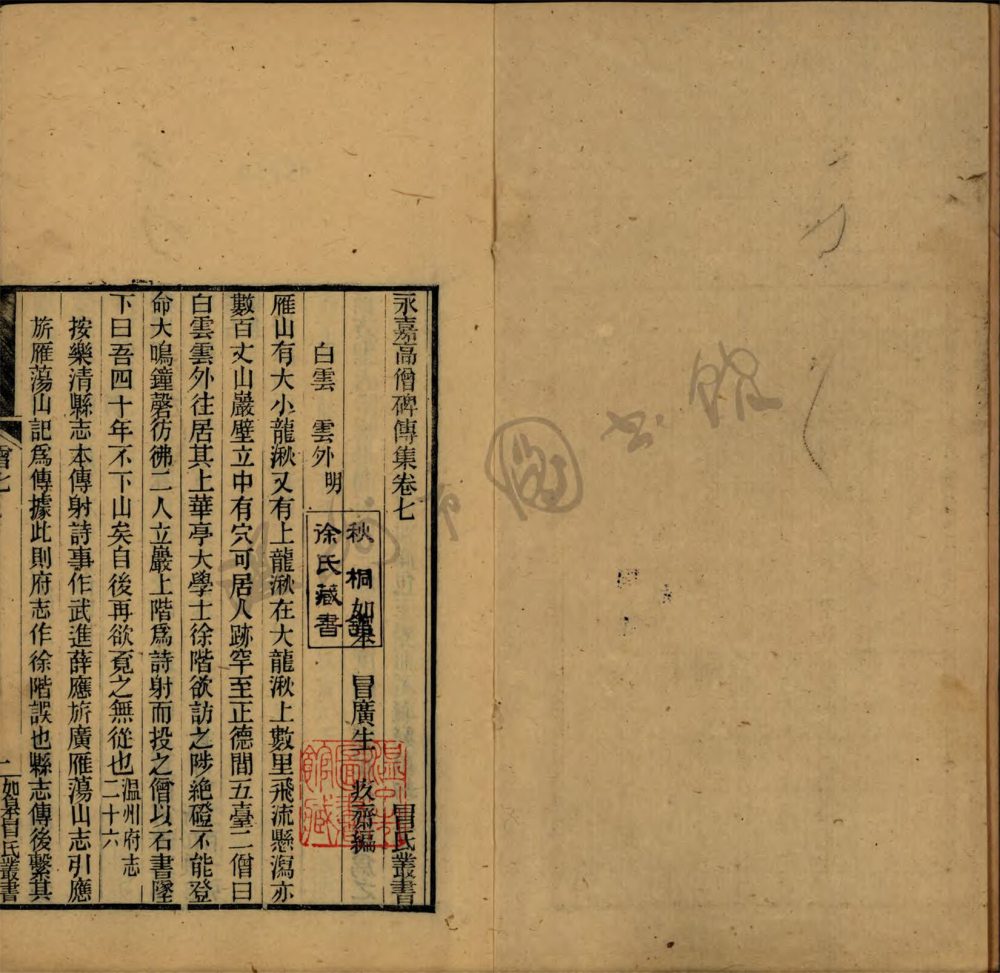 永嘉高僧碑傳集卷七 冒氏叢書
如皋 冒廣生 疚齋編
白雲 雲外 明
雁山有大小龍湫又有上龍湫在大龍湫上數里飛流懸瀉亦
數百丈山巖壁立中有穴可居人跡罕至正德間五臺二僧曰
白雲雲外往居其上華亭大學士徐階欲訪之陟絕磴不能登
命大鳴鐘磬彷彿二人立巖上階爲詩射而投之僧以石書墜
下曰吾四十年不下山矣自後再欲覓之無從也溫州府志二十六
按樂清縣志本傳射詩事作武進薛應旂廣雁蕩山志引應
旂雁蕩山記爲傳據此則府志作徐階誤也縣志傳後繫其
如皋冒氏叢書
秋桐
徐氏藏書
圖書館藏
市圖書館